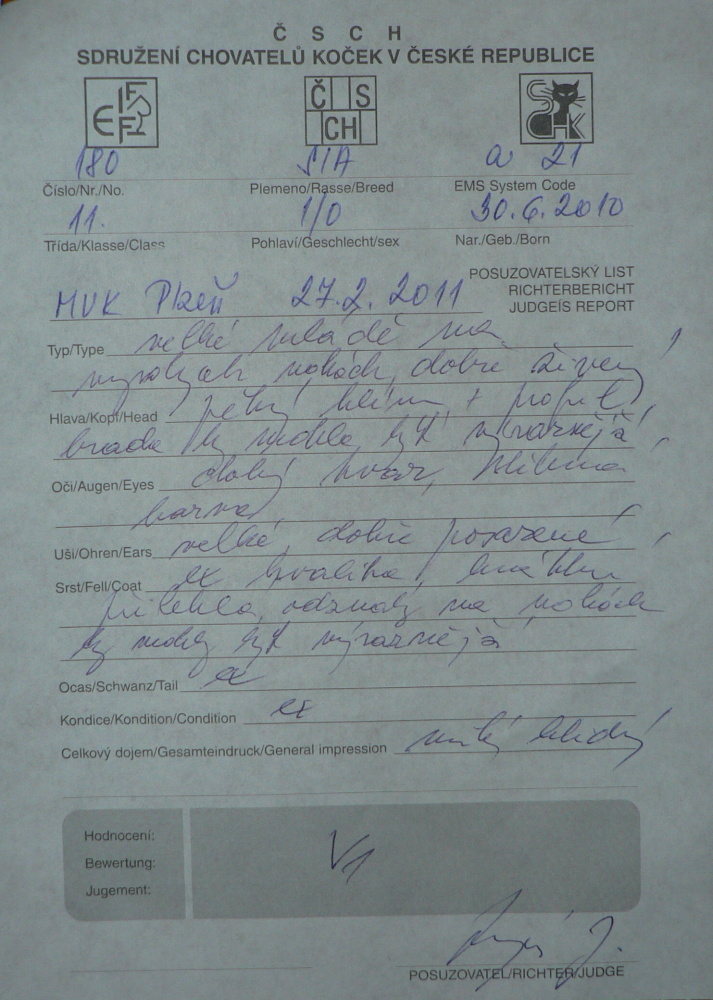 Č S C H
SDRUŽENÍ CHOVATELŮ KOČEK V ČESKÉ REPUBLICE
FIFE
ČSCH
SCHK
180 SIA a 21
Číslo/Nr./No. Plemeno/Rasse/Breed EMS System Code
11. 1/0 30.6.2010
Třída/Klasse/Class Pohlaví/Geschlecht/sex Nar./Geb./Born
POSUZOVATELSKÝ LIST
RICHTERBERICHT
JUDGEÍS REPORT
MVK Plzeň 27.2.2011
Typ/Type velké mládě na
vysokých nohách, dobře živený,
Hlava/Kopf/Head pěkný klín + profil,
brada by mohla být výraznější,
Oči/Augen/Eyes dobrý tvar,
barva,
Uši/Ohren/Ears velké, dobře posazené,
Srst/Fell/Coat ex kvalita, krátká
přilehlá, odznaky na nohách
by mohly být výraznější
Ocas/Schwanz/Tail ex
Kondice/Kondition/Condition ex
Celkový dojem/Gesamteindruck/General impression milý klidný,
Hodnocení:
Bewertung:
Jugement:
V1
POSUZOVATEL/RICHTER/JUDGE